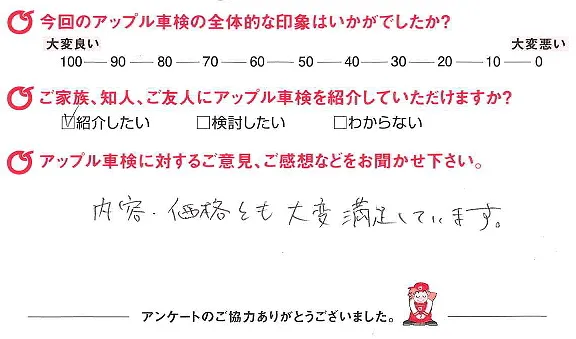 今回のアップル車検の全体的な印象はいかがでしたか?
大変良い 大変悪い
100—90—80—70—60—50—40—30—20—10—0
ご家族、知人、ご友人にアップル車検を紹介していただけますか?
☑紹介したい □検討したい □わからない
アップル車検に対するご意見、ご感想などをお聞かせ下さい。
内容・価格とも大変満足しています。
アンケートのご協力ありがとうございました。